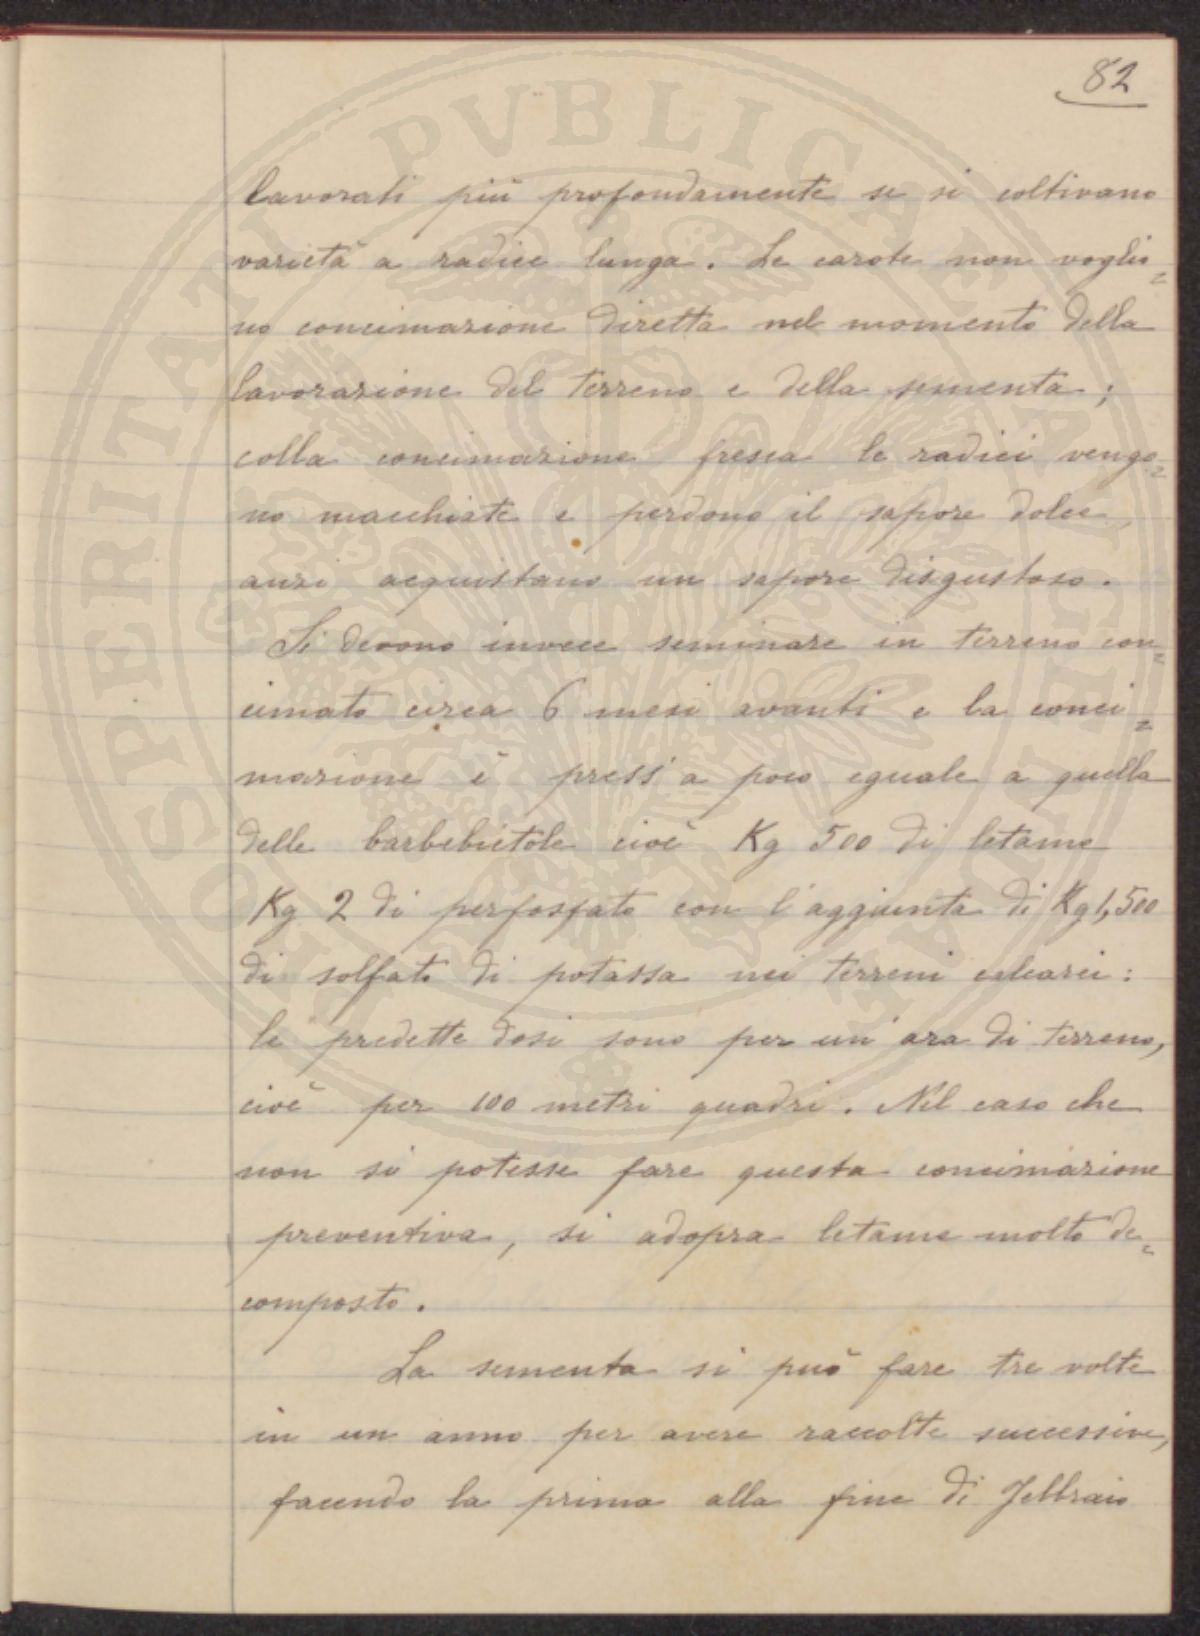 82
lavorati più profondamente se si coltivano
varietà a radice lunga. Le carote non voglio=
no concimazione diretta nel momento della
lavorazione del terreno e della sementa;
colla concimazione fresca le radici vengo=
no macchiate e perdono il sapore dolce,
anzi acquistano un sapore disgustoso.
Si devono invece seminare in terreno con=
cimato circa 6 mesi avanti e la conci=
mazione è press'a poco eguale a quella
delle barbebietole cioè Kg 500 di letame
Kg 2 di perfosfato con l'aggiunta di Kg 1,500
di solfato di potassa nei terreni calcarei:
le predette dosi sono per un'ara di terreno,
cioè per 100 metri quadri. Nel caso che
non si potesse fare questa concimazione
preventiva, si adopra letame molto de=
composto.
La sementa si può fare tre volte
in un anno per avere raccolte successive,
facendo la prima alla fine di Febbraio
PROSPERITATI PVBLICAE AVGENDAE